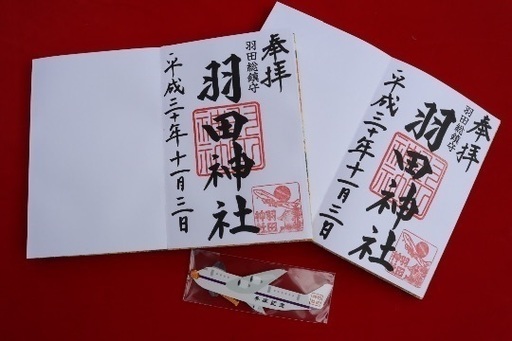 奉拝
羽田総鎮守
羽田神社
平成三十年十一月三日
奉拝
羽田総鎮守
羽田神社
平成三十年十一月三日